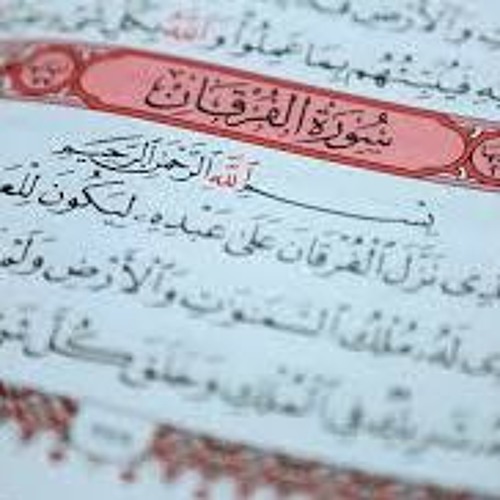 وَٱلْأَرْضِ
فَيُنَبِّئُهُم بِمَا عَمِلُوا۟ وَٱللَّهُ بِكُلِّ
سُورَةُ الفُرْقَانِ
بِسْمِ ٱللَّهِ ٱلرَّحْمَٰنِ ٱلرَّحِيمِ
نَزَّلَ ٱلْفُرْقَانَ عَلَىٰ عَبْدِهِۦ لِيَكُونَ
لَهُۥ مُلْكُ ٱلسَّمَٰوَٰتِ وَٱلْأَرْضِ وَلَمْ
شَرِيكٌ فِى ٱلْمُلْكِ وَخَلَقَ كُلَّ